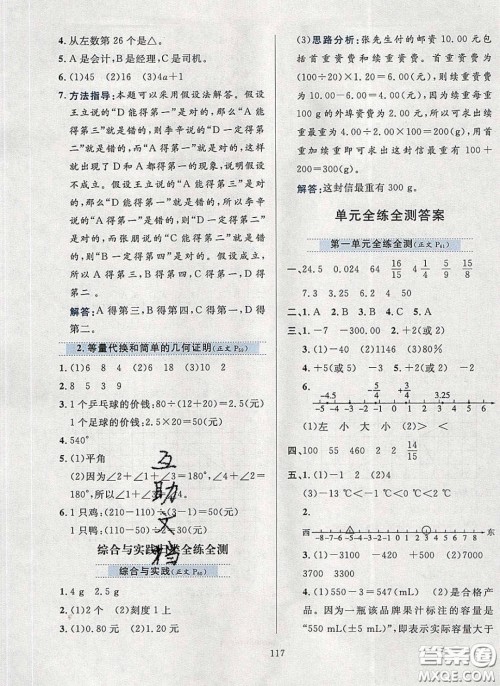 4. 从左数第 26 个是△。
5. A 是会计,B 是经理,C 是司机。
6. (1)45 (2)20 (3)4a+1
7. 方法指导:本题可以采用假设法解答。假设
王立说的“D 能得第一”是对的,那么“A 能
得第三”就是错的,则李辛说的“D 一定得第
二”就是错的,“A 能得第一”就是对的,这样
就出现了 D 和 A 都得第一的现象,说明假设
不成立。假设王立说的“A 能得第三”是对
的,那么“D 能得第一”就是错的,李辛说的
“A 能得第一”就是错的,“D 一定得第二”是
对的,而张朋说的“C 能得第二”就是错的,
“B 得第三”就是对的,这与 A 得第三矛盾,故
假设不成立。
解答:A 得第三,B 得第一,C 得第四,D 得
第二。
2. 等量代换和简单的几何证明(正文 P₅₉)
1. (1)6 8 4 (2)6 18 (3)10 2
2. 9
3. 1 个乒乓球的价钱:80÷(12+20)=2.5(元)
1 个足球的价钱:2.5×20=50(元)
4. 540°
5. (1)平角
(2)因为∠2+∠1+∠3=180°,∠4+∠3=
180°,所以∠4=∠1+∠2。
6. 1 只鸡:(210-110)÷(5-3)=50(元)
1 只鸭:(110-50)÷(3-1)=30(元)
综合与实践类全练全测
综合与实践(正文 P₆₀)
1. 4 g 2.5 g
2. (1)2 个 (2)刻度 1 上
3. (1)0.80 元 (2)1.40 元
(3)思路分析:张先生付的邮资 10.00 元包
括首重资费和续重资费。首重资费为
(100÷20)×1.20=6.00(元),所以续重资费
为 10.00-6.00=4.00(元)。因为续重每重
100 g 的外埠资费为 2.00 元,所以续重最重
为 4.00÷2.00×100=200(g)。再根据首重
加续重即可求出这封信最重有 100+200=
300(g)。
解答:这封信最重有 300 g。
单元全练全测答案
第一单元全练全测(正文 P₆₁)
一、24.5 0.024 64 16/15 1/4 4/9 15/8
7.3 3.25 8 40 6 4/15
二、1. B 2. B 3. C 4. C 5. A
三、1. (1)-1 2 (2)+2(或 2)
4. +5(或 5) -2 5. -2 +2(或 2)
-4.5 1 3.25
-5 -4 -3 -2 -1 0 1 2 3 4 5 6
(1)左 小 大 小 (2)
四、100 15 625 0.1 2.4 14/15
五、1. (1)-1 -2 (2)4
西 东
-6 -5 -4 -3 -2 -1 0 1 2 3 4 5 6
3. (1)550-553=-3(mL) (2)是合格产
品。因为一瓶该品牌果汁标注的容量是
“550 mL(±5 mL)”,即表示实际容量大于
117
互助文档
答案圈
MXQE.COM